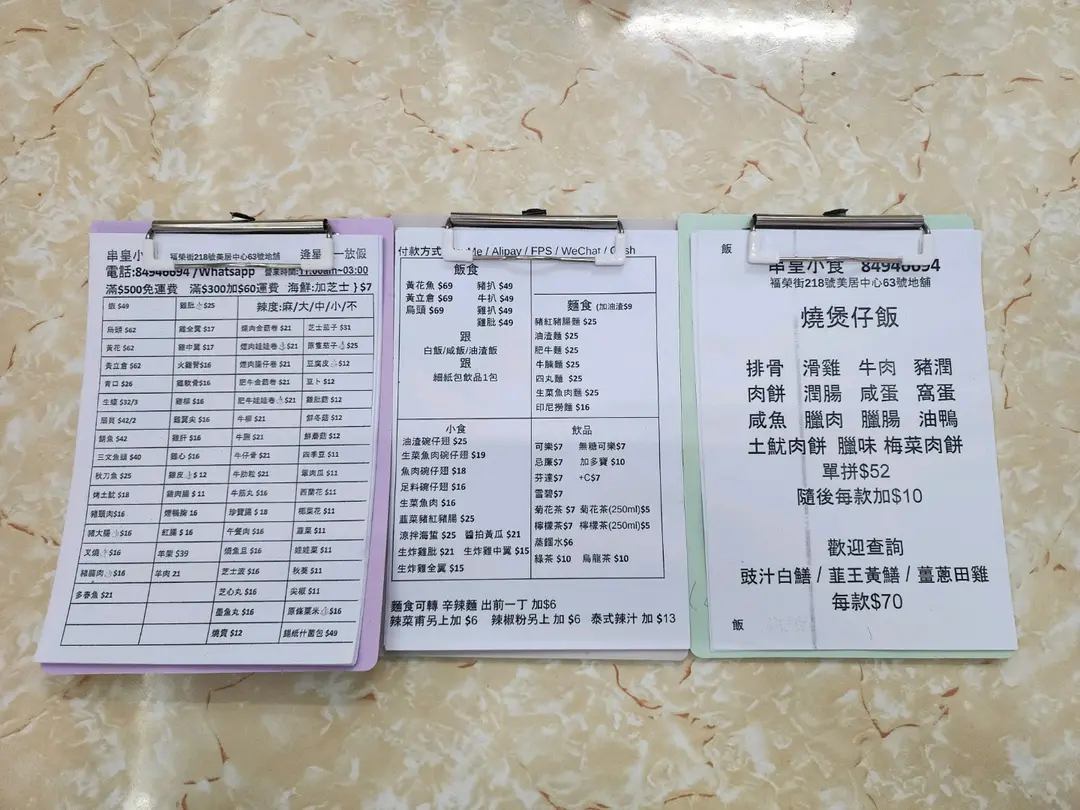 串皇小
福榮街218號美居中心63號地舖
逢星
一放假
電話:84946694 /Whatsapp 營業時間:11:00am~03:00
滿$500免運費 滿$300加$60運費 海鮮:加芝士 } $7
蝦 $49 雞肚 $25 辣度:麻/大/中/小/不
烏頭 $62 雞全翼 $17 燒肉金菇卷 $21 芝士茄子 $31
黃花 $62 雞中翼 $17 煙肉娃娃卷 $21 原隻茄子 $25
黃立倉 $62 火雞腎$16 煙肉腸仔卷 $21 豆腐皮 $12
青口 $26 雞軟骨$16 肥牛金菇卷 $21 豆卜 $12
生蠔 $32/3 雞柳 $16 肥牛娃娃卷 $21 雞肶菇 $12
扇貝 $42/2 雞翼尖 $16 牛柳 $21 鮮冬菇 $12
鯖魚 $42 雞肝 $16 牛脷 $21 鮮蘑菇 $12
三文魚頭 $40 雞心 $16 牛仔骨 $21 四季豆 $11
秋刀魚 $25 雞皮 $ 12 牛肋粒 $21 翠肉瓜 $11
烤土魷 $18 雞肉腸 $ 11 牛筋丸 $16 西蘭花 $11
豬頸肉$16 煙鴨胸 16 珍寶腸 $ 18 椰菜花 $11
豬大腸 $16 紅腸 $ 16 午餐肉 $16 韮菜 $11
叉燒 $16 羊架 $39 燒魚旦 $16 娃娃菜 $11
豬腸肉 $16 羊肉 21 芝士波 $16 秋葵 $11
多春魚 $21 芝心丸 $16 尖椒 $11
墨魚丸 $16 原條粟米 $16
燒賣 $12 錫紙什菌包 $49
付款方式 Me / Alipay / FPS / WeChat / C sh
飯食
黃花魚 $69 豬扒 $49
黃立倉 $69 牛扒 $49
烏頭 $69 雞扒 $49
雞肶 $49
跟
白飯/咸飯/油渣飯
跟
細紙包飲品1包
麵食 (加油渣$9
豬紅豬腸麵 $25
油渣麵 $25
肥牛麵 $25
牛腩麵 $25
四丸麵 $25
生菜魚肉麵 $25
印尼撈麵 $16
小食
油渣碗仔翅 $25
生菜魚肉碗仔翅 $19
魚肉碗仔翅 $18
足料碗仔翅 $16
生菜魚肉 $16
韮菜豬紅豬腸 $25
涼拌海蜇 $25 醬拍黃瓜 $21
生炸雞肶 $21 生炸雞中翼 $15
生炸雞全翼 $15
飲品
可樂$7 無糖可樂$7
忌廉$7 加多寶 $10
芬達$7 +C$7
雪碧$7
菊花茶 $7 菊花茶(250ml)$5
檸檬茶$7 檸檬茶(250ml)$5
蒸餾水$6
綠茶 $10 烏龍茶 $10
麵食可轉 辛辣麵 出前一丁 加$6
辣菜甫另上加 $6 辣椒粉另上 加 $6 泰式辣汁 加 $13
飯
串皇小食 84946694
福榮街218號美居中心63號地舖
燒煲仔飯
排骨 滑雞 牛肉 豬潤
肉餅 潤腸 咸蛋 窩蛋
咸魚 臘肉 臘腸 油鴨
土魷肉餅 臘味 梅菜肉餅
單拼$52
隨後每款加$10
歡迎查詢
豉汁白鱔 / 韮王黃鱔 / 薑蔥田雞
每款$70
飯